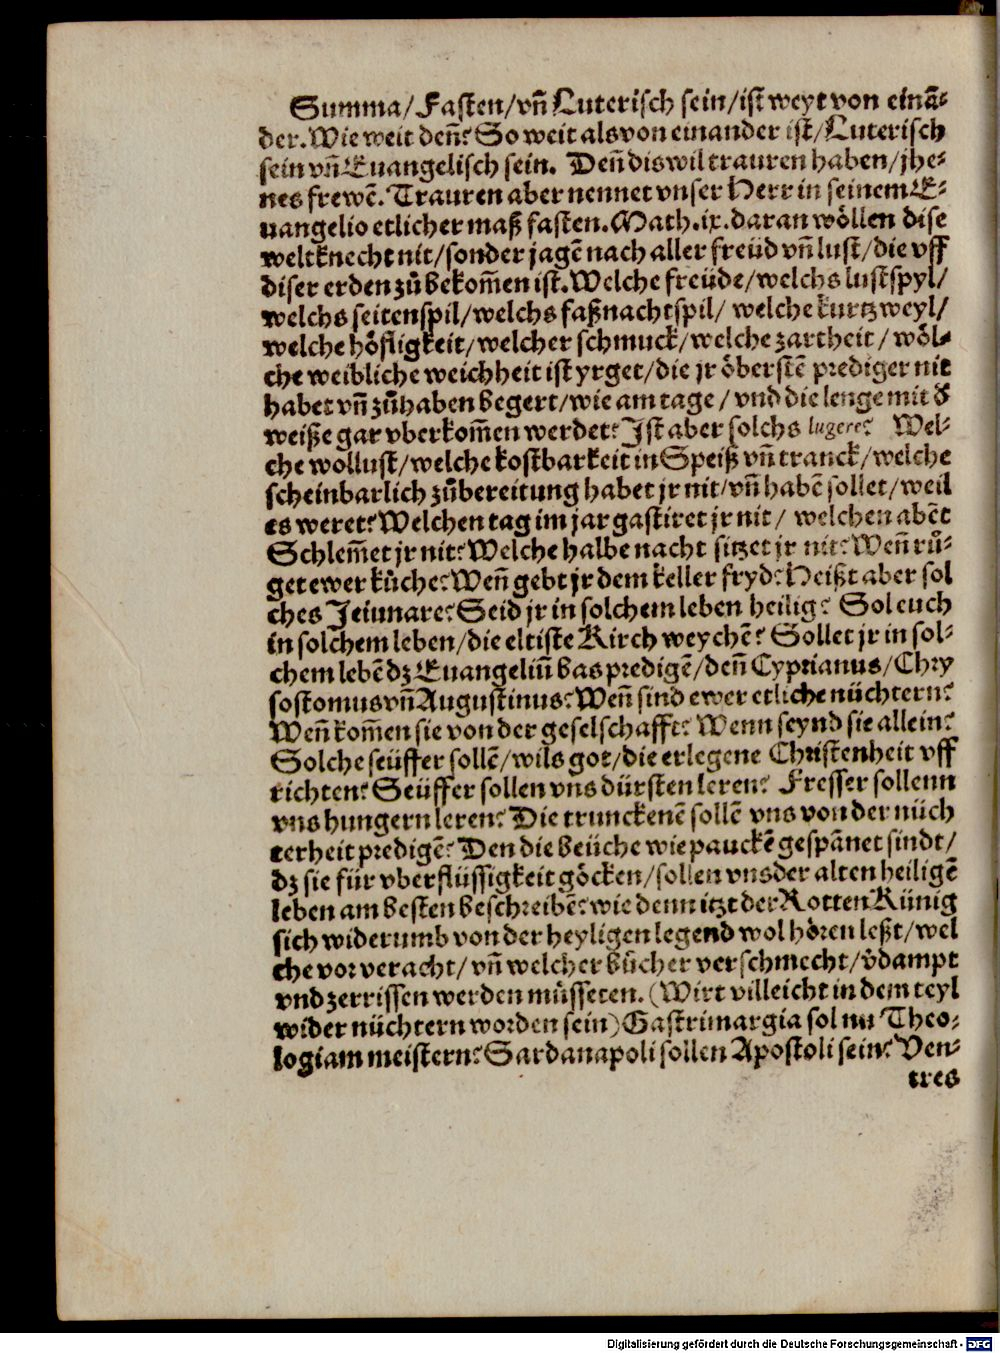 Summa/ Fasten/ vn̄ Luterisch sein/ ist weyt von einā-
der. Wie weit den̄? So weit als von einander ist/ Luterisch
sein vn̄ Euangelisch sein. Den̄ dis wil trauren haben/ jhe-
nes frewē. Trauren aber nennet vnser Herr in seinem E-
uangelio etlicher maß fasten. Math. ix. daran wöllen dise
weltknecht nit/ sonder jagē nach aller freüd vn̄ lust/ die vff
diser erden zů bekom̄en ist. Welche freüde/ welchs lustspyl/
welchs seitenspil/ welchs faßnachtspil/ welche kurtzweyl/
welche höfligkeit/ welcher schmuck/ welche zartheit/ wöl-
che weibliche weichheit ist yrget/ die jr öberstē prediger nit
habet vn̄ zů haben begert/ wie am tage/ vnd die lenge mit d̕
weiße gar vberkom̄en werdet? Ist aber solchs lugere? Wel-
che wollust/ welche kostbarkeit in Speiß vn̄ tranck/ welche
scheinbarlich zůbereitung habet jr nit/ vn̄ habē sollet/ weil
es weret? Welchen tag im jar gastiret jr nit/ welchen abēt
Schlem̄et jr nit? Welche halbe nacht sitzet jr nit? Wen̄ rů-
get ewer küche? Wen̄ gebt jr dem keller fryd? Heißt aber sol
ches Jeiunare? Seid jr in solchem leben heilig? Sol euch
in solchem leben/ die eltiste Kirch weychē? Sollet jr in sol-
chem lebē dz Euangeliū bas predigē/ den̄ Cyprianus/ Chry
sostomus vn̄ Augustinus? Wen̄ sind ewer etliche nüchtern?
Wen̄ kom̄en sie von der geselschafft? Wenn seynd sie allein?
Solche seüffer sollē/ wils got/ die erlegene Christenheit vff
richten? Seüffer sollen vns dürsten leren? Fresser sollenn
vns hungern leren? Die trunckenē sollē vns von der nüch
terheit predigē? Den die beüche wie pauckē gespānet sindt/
dz sie für vberflüssigkeit göcken/ sollen vns der alten heiligē
leben am besten beschreibē? wie denn itzt der Rotten Künig
sich widerumb von der heyligen legend wol hören leßt/ wel
che vor veracht/ vn̄ welcher bücher verschmecht/ v̄dampt
vnd zerrissen werden müsseten. (Wirt villeicht in dem teyl
wider nüchtern worden sein) Gastrimargia sol nu Theo-
logiam meistern? Sardanapoli sollen Apostoli sein? Ven-
tres
Digitalisierung gefördert durch die Deutsche Forschungsgemeinschaft - DFG